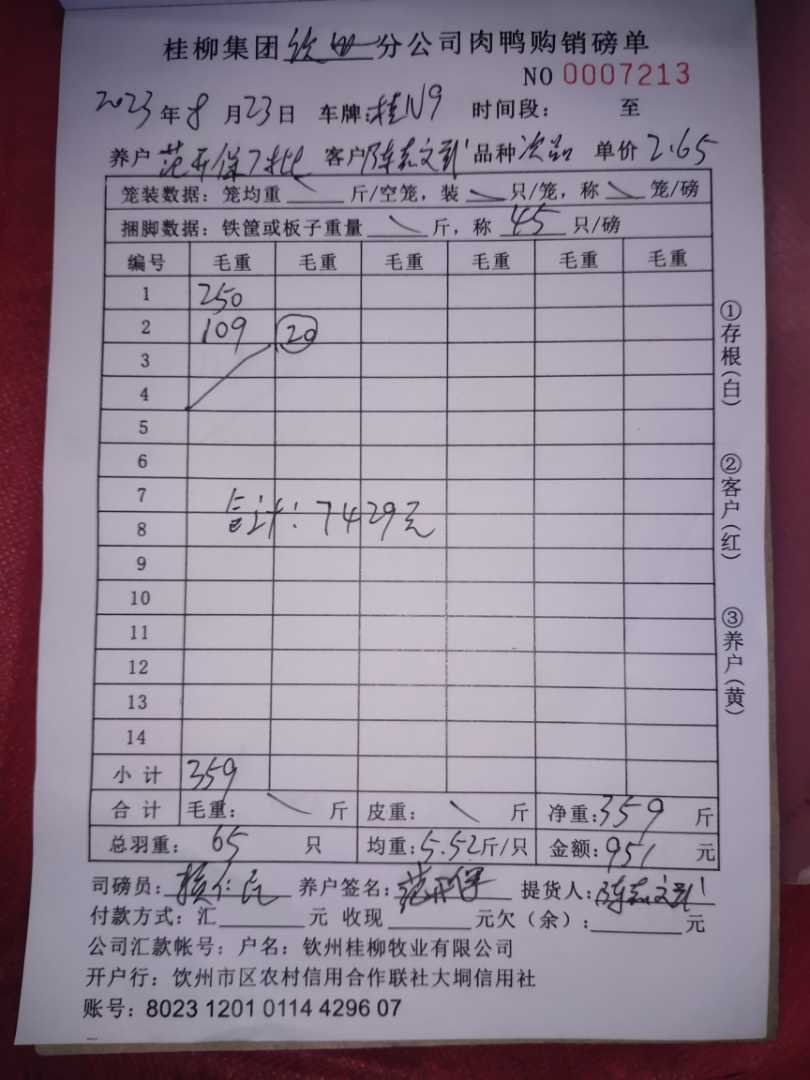 桂柳集团钦州分公司肉鸭购销磅单
NO 0007213
2023年8月23日 车牌:桂N9 时间段: 至
养户范开保7批 客户陈志文 品种次品 单价2.65
笼装数据:笼均重 斤/空笼,装 只/笼,称 笼/磅
捆脚数据:铁筐或板子重量 斤,称45只/磅
编号 毛重 毛重 毛重 毛重 毛重 毛重
1 250
2 109 20
3
4
5
6
7
合计:7429元
8
9
10
11
12
13
14
小计 359
合计 毛重: 斤 皮重: 斤 净重:359斤
总羽重: 65 只 均重:5.52斤/只 金额:951元
司磅员: 仁 养户签名:范开保 提货人:陈志文
付款方式:汇 元 收现 元欠(余): 元
公司汇款帐号:户名:钦州桂柳牧业有限公司
开户行:饮州市区农村信用合作联社大垌信用社
账号:8023 1201 0114 4296 07
①存根(白)
②客户(红)
③养户(黄)